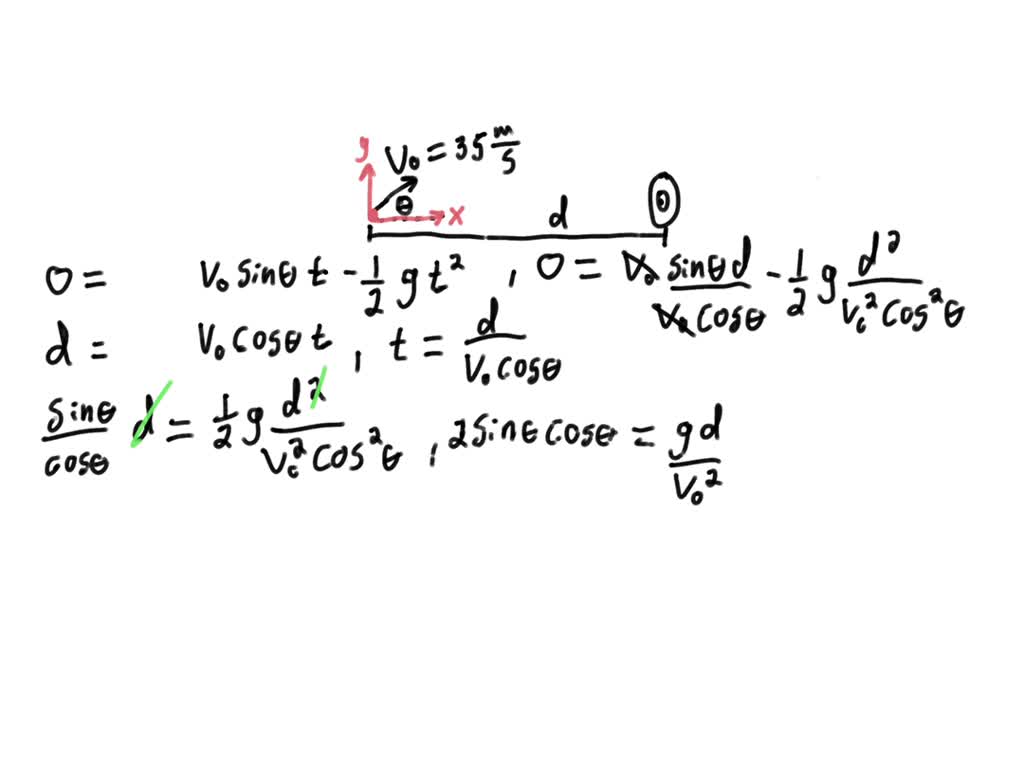 y V₀ = 35 m/s
θ x d
0 = V₀ sinθ t - 1/2 g t² , 0 = V₀ sinθ d / V₀ cosθ - 1/2 g d² / V₀² cos²θ
d = V₀ cosθ t , t = d / V₀ cosθ
sinθ / cosθ d = 1/2 g d² / V₀² cos²θ , 2 sinθ cosθ = g d / V₀²